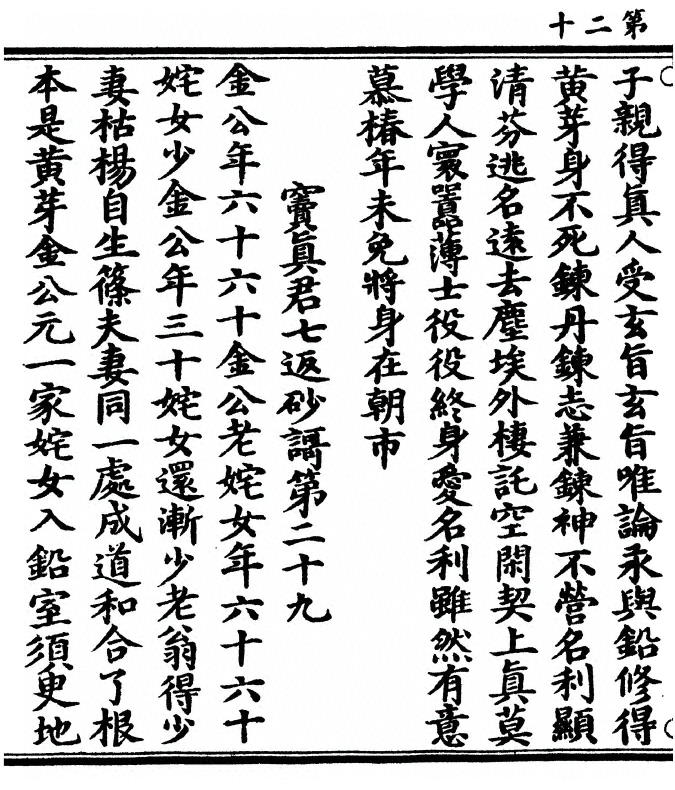 第二十
子親得眞人受玄旨玄旨唯論汞與鉛修得
黄芽身不死鍊丹鍊志兼鍊神不營名利顯
清芬逃名遠去塵埃外棲託空閑契上眞莫
學人寰囂薄士役役終身愛名利雖然有意
慕椿年未免將身在朝市
竇眞君七返砂謌第二十九
金公年六十六十金公老姹女年六十六十
姹女少金公年三十姹女還漸少老翁得少
妻枯楊自生篠夫妻同一處成道和合了根
本是黄芽金公元一家姹女入鉛室須臾地